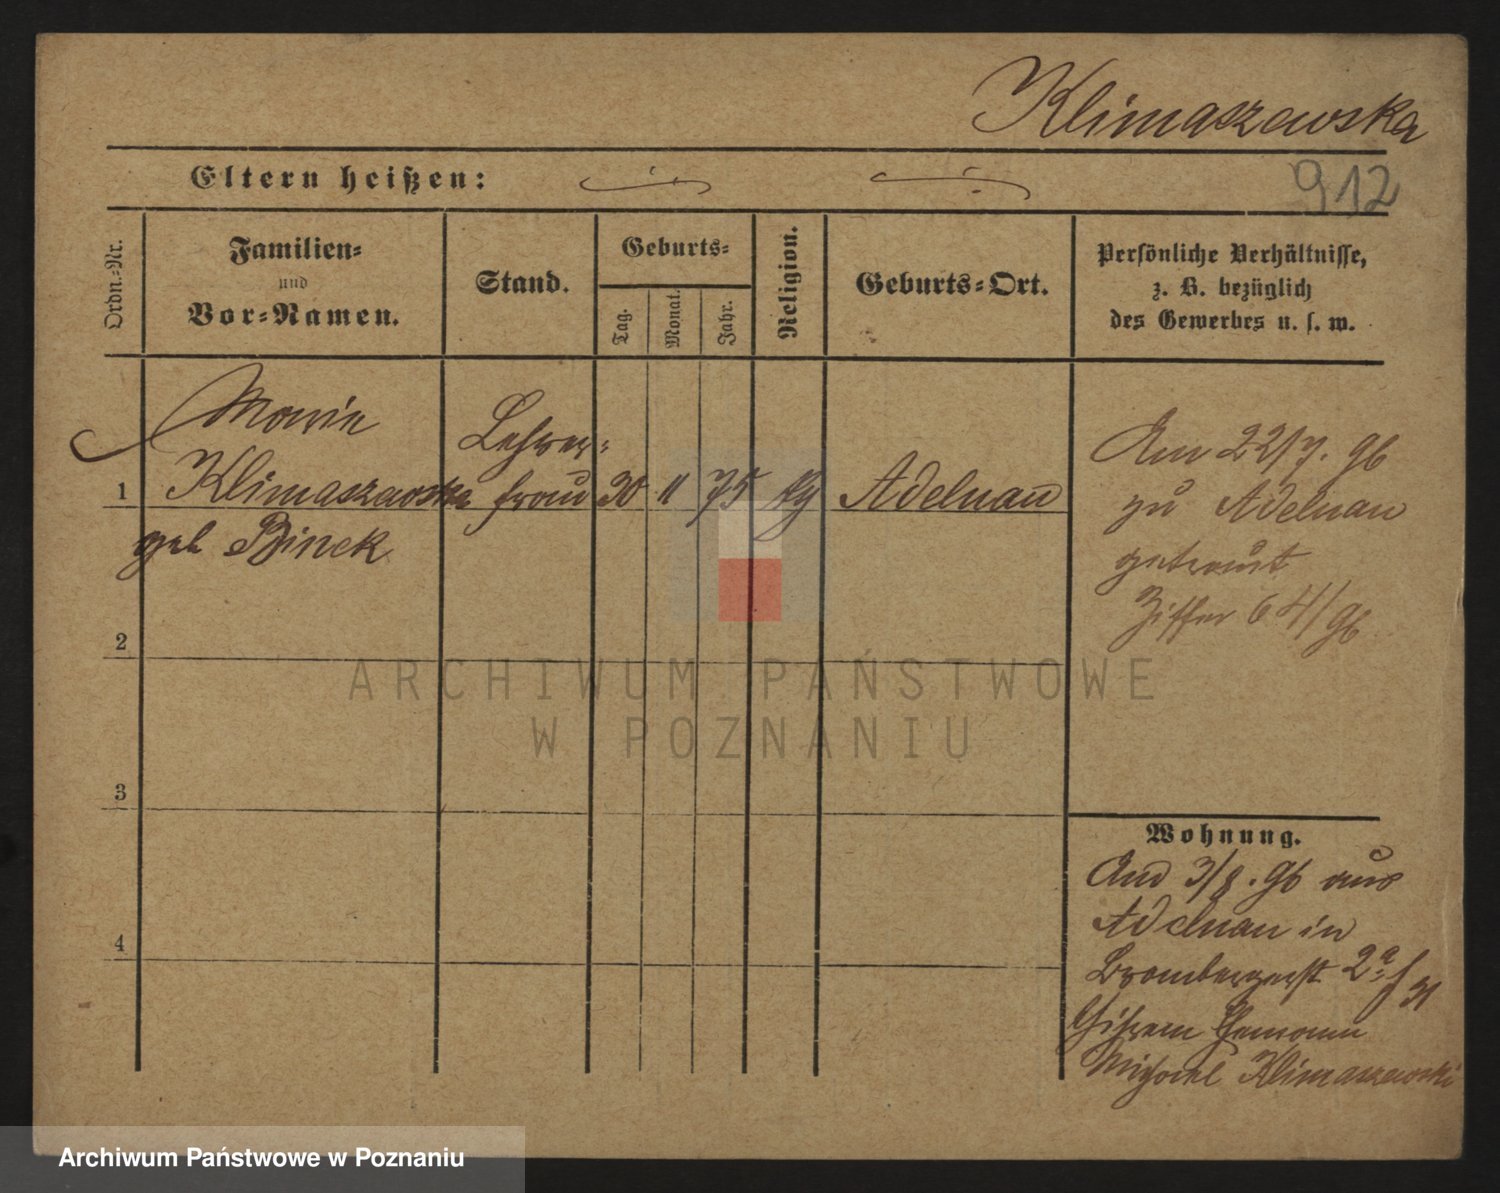 Klimaszewska
Eltern heißen:
912
Ordn.-Nr.
Familien-
und
Vor-Namen.
Stand.
Geburts-
Tag.
Monat.
Jahr.
Religion.
Geburts-Ort.
Persönliche Verhältnisse,
z. B. bezüglich
des Gewerbes u. s. w.
Marie
Klimaszewska
geb Binek
Lehrer-
frau
1
30 11 75 kg Adelnau
Am 22/7. 96
zu Adelnau
getraut
Ziffer 64/96
2
ARCHIWUM PAŃSTWOWE
W POZNANIU
3
Wohnung.
And 3/8. 96 aus
Adelnau in
Brombergerst 2a
31
Ehemann
Michael Klimaszewski
4
Archiwum Państwowe w Poznaniu